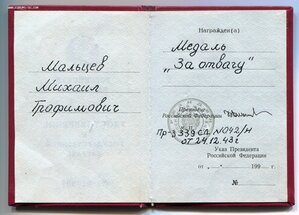 Мальцев
Михаил
Трофимович
Награжден(а)
Медаль
„За отвагу"
Президент
Российской Федерации
Пр-3339сд №092/Н
от 24.12.43г
Указ Президента
Российской Федерации
от „ . 199 г.
№